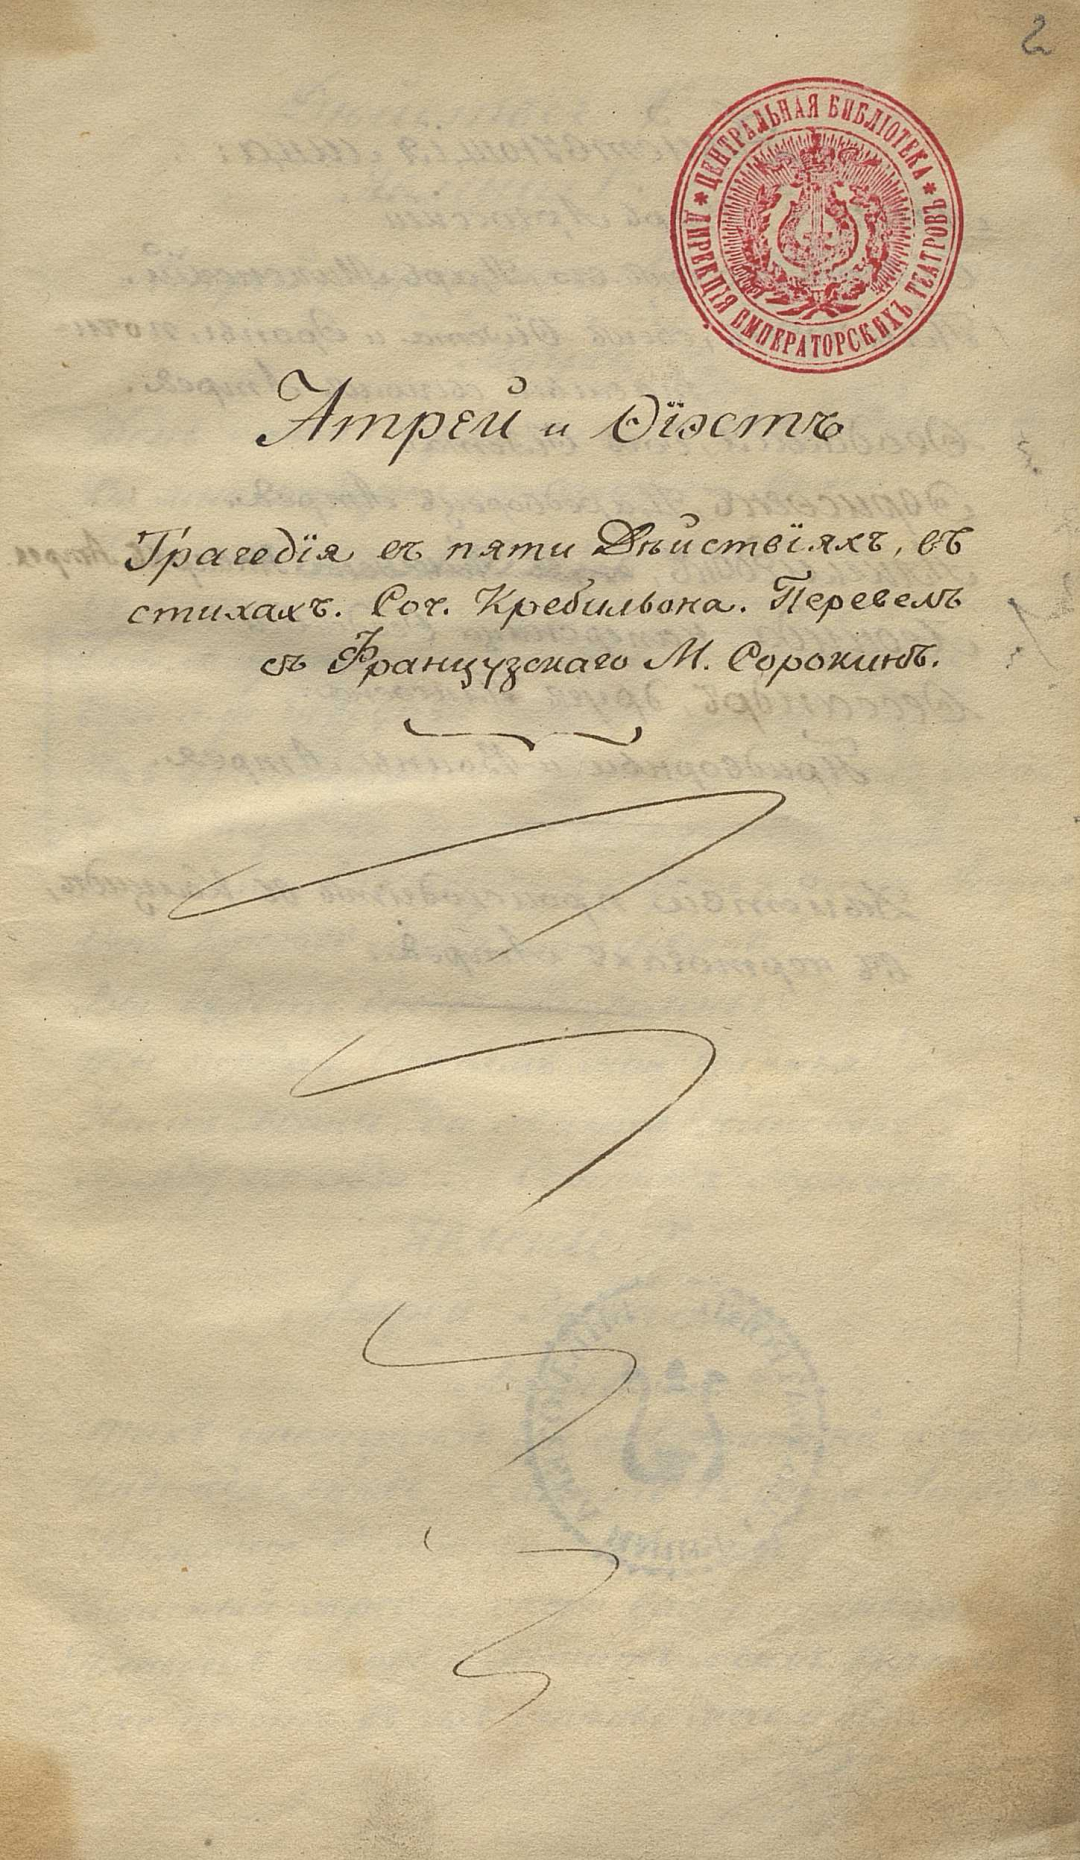 2
✱ ЦЕНТРАЛЬНАЯ БИБЛІОТЕКА ✱ ДИРЕКЦІЯ ИМПЕРАТОРСКИХЪ ТЕАТРОВЪ
Атрей и Ѳіэстъ
Трагедія въ пяти Дѣйствіяхъ, въ
стихахъ. Соч. Кребильона. Перевелъ
съ Французскаго М. Сорокинъ.